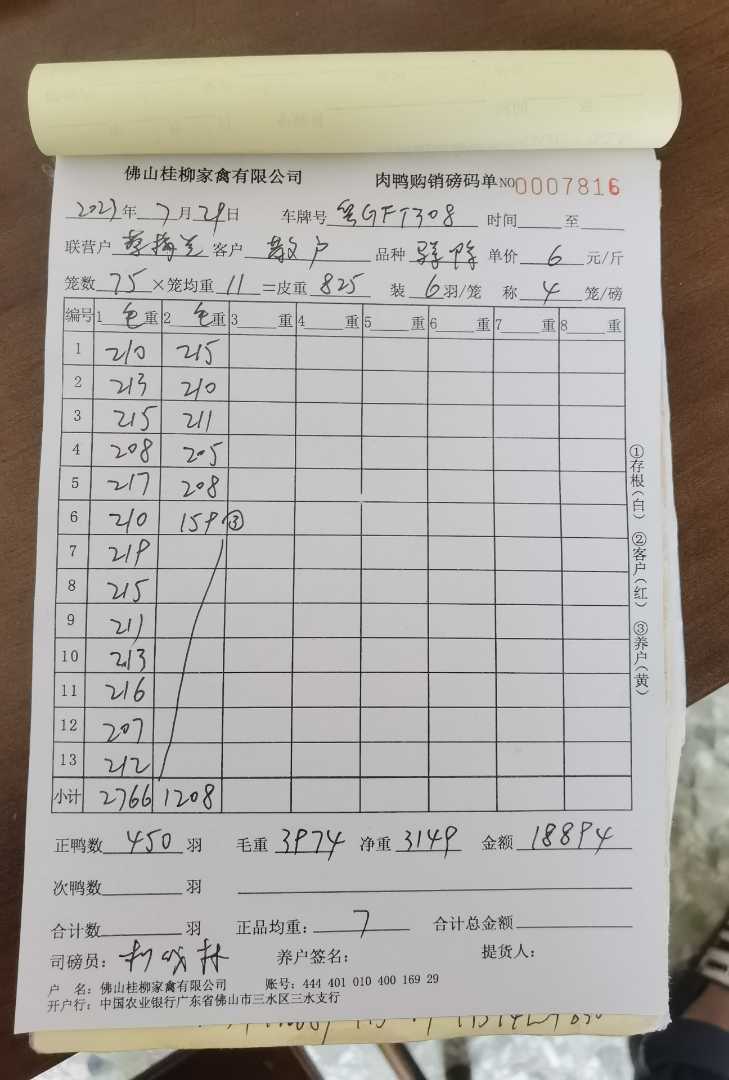 佛山桂柳家禽有限公司 肉鸭购销磅码单 NO 0007816
2023年 7 月 29 日 车牌号 粤GFT308 时间 至
联营户 客户 散户 品种 单价 6 元/斤
笼数 75 ×笼均重 11 =皮重 825 装 6 羽/笼 称 4 笼/磅
编号 1 毛 重 2 毛 重 3 重 4 重 5 重 6 重 7 重 8 重
1 210 215
2 213 210
3 215 211
4 208 205
5 217 208
6 210 159 ③
7 219
8 215
9 211
10 213
11 216
12 207
13 212
小计 2766 1208
正鸭数 450 羽 毛重 3974 净重 3149 金额 18894
次鸭数 羽
合计数 羽 正品均重: 7 合计总金额
司磅员: 养户签名: 提货人:
户 名: 佛山桂柳家禽有限公司 账号: 444 401 010 400 169 29
开户行: 中国农业银行广东省佛山市三水区三水支行
①存根(白) ②客户(红) ③养户(黄)